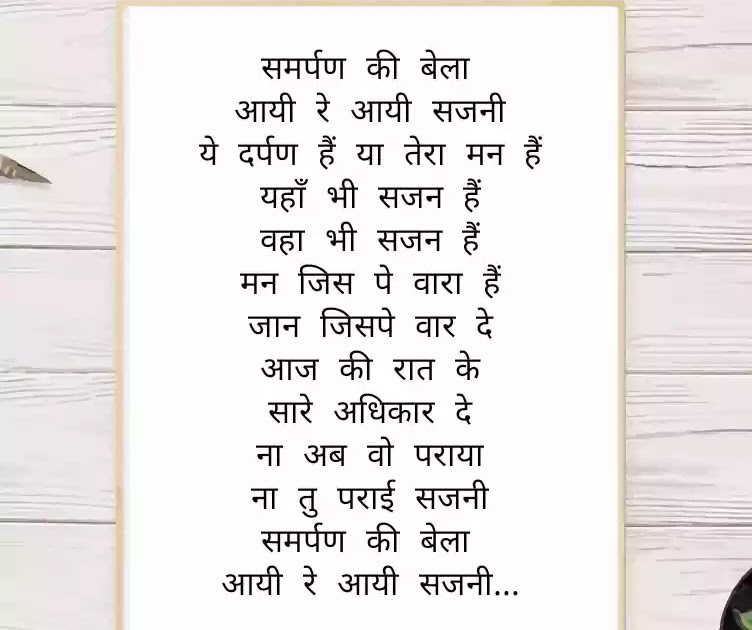 समर्पण की बेला
आयी रे आयी सजनी
ये दर्पण हैं या तेरा मन हैं
यहाँ भी सजन हैं
वहा भी सजन हैं
मन जिस पे वारा हैं
जान जिसपे वार दे
आज की रात के
सारे अधिकार दे
ना अब वो पराया
ना तु पराई सजनी
समर्पण की बेला
आयी रे आयी सजनी...